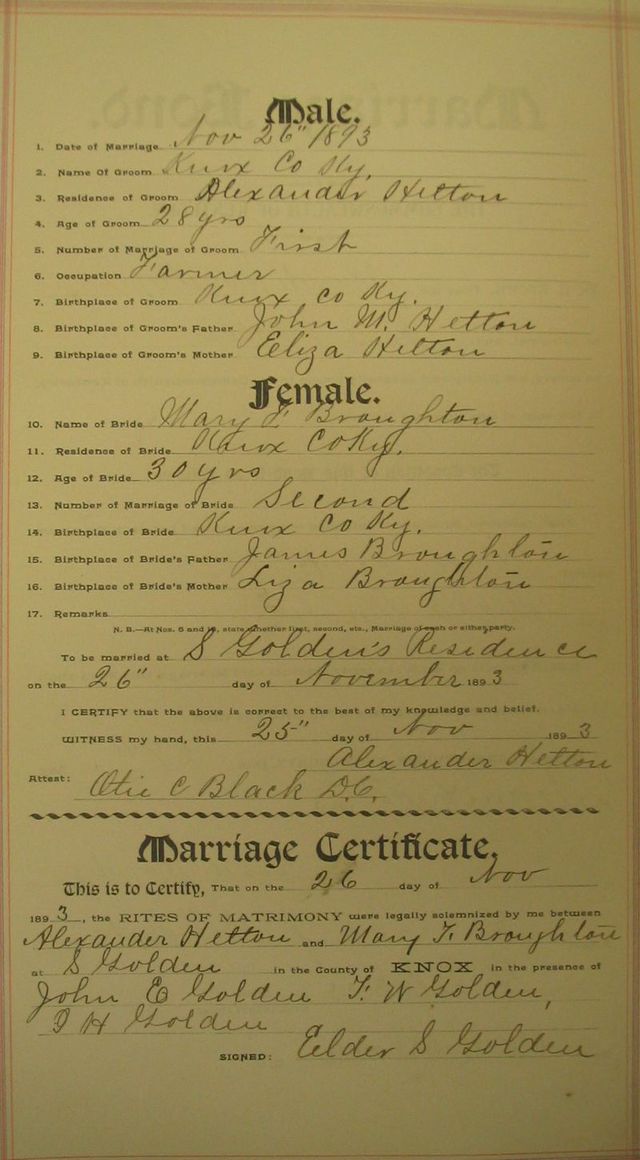 Male.
1. Date of Marriage Nov 26" 1893
2. Name Of Groom Knox Co Ky,
3. Residence of Groom Alexander Hetton
4. Age of Groom 28 yrs
5. Number of Marriage of Groom First
6. Occupation Farmer
7. Birthplace of Groom Knox Co Ky.
8. Birthplace of Groom's Father John M. Hetton
9. Birthplace of Groom's Mother Eliza Hetton
Female.
10. Name of Bride Mary F Broughton
11. Residence of Bride Knox Co Ky.
12. Age of Bride 30 yrs
13. Number of Marriage of Bride Second
14. Birthplace of Bride Knox Co Ky.
15. Birthplace of Bride's Father James Broughton
16. Birthplace of Bride's Mother Liza Broughton
17. Remarks
N. B.—At Nos. 5 and 13, state whether first, second, etc., Marriage of each or either party.
To be married at S Golden's Residence
on the 26" day of November 1893
I CERTIFY that the above is correct to the best of my knowledge and belief.
WITNESS my hand, this 25" day of Nov 1893
Alexander Hetton
Attest: Otie C Black D.C.
Marriage Certificate.
This is to Certify, That on the 26 day of Nov
1893, the RITES OF MATRIMONY were legally solemnized by me between
Alexander Hetton and Mary F. Broughton
at S Golden in the County of KNOX in the presence of
John E Golden F. W Golden,
H Golden
SIGNED: Elder S Golden